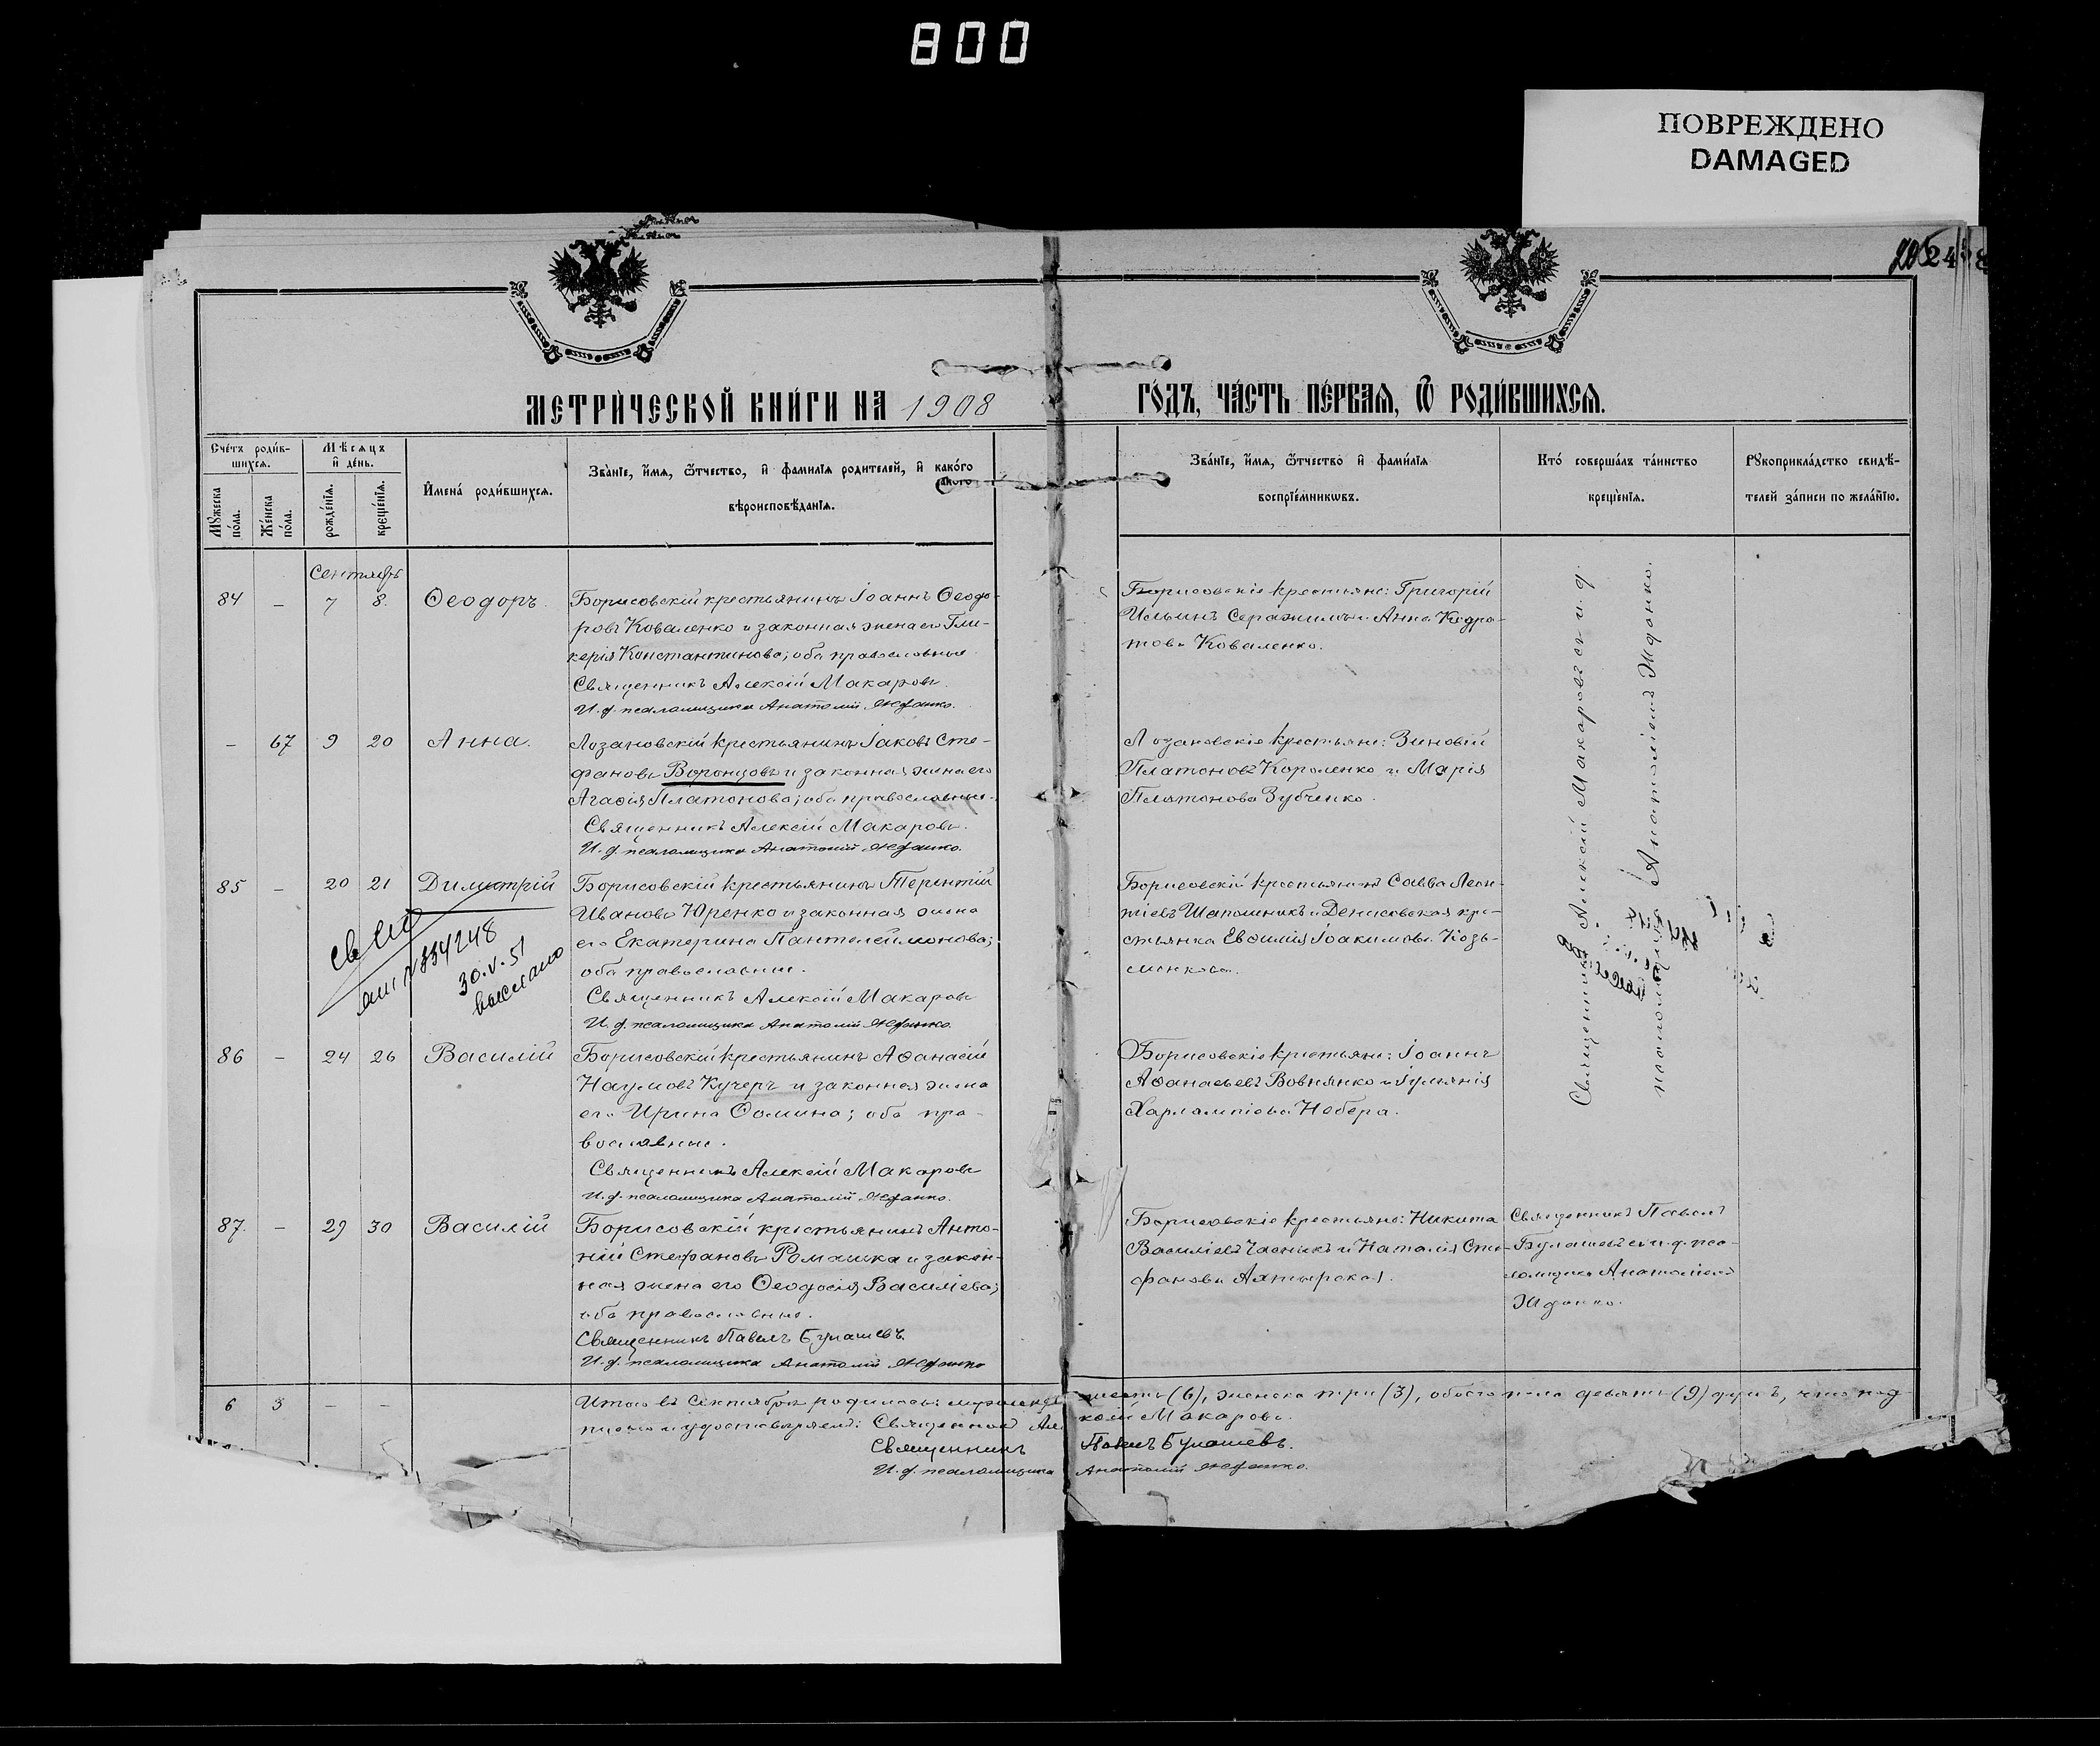 800
ПОВРЕЖДЕНО
DAMAGED
МЕТРИ́ЧЕСКОЙ КНИ́ГИ НА 1908 ГО́ДЪ, ЧА́СТЬ ПЕ́РВАЯ, Ѡ҆ РОДИ́ВШИХСЯ.
Сче́тъ роди́вшихся.
Мꙋ́жеска по́ла.
Же́нска по́ла.
Мѣ́сяцъ и҆ де́нь.
рожде́нїя.
креще́нїя.
И҆мена̀ роди́вшихся.
Зва́нїе, и҆́мя, ѻ҆́тчество, и҆ фами́лїя роди́телей, и҆ како́го
вѣроисповѣ́данїя.
Зва́нїе, и҆́мя, ѻ҆́тчество и҆ фами́лїя
воспрїе́мникѡвъ.
Кто̀ соверша́лъ та́инство
креще́нїя.
Рꙋкоприкла́дство свидѣ́-
телей за́писи по жела́нїю.
Сентябрь
84 – 7 8 Ѳеодоръ.
Борисовскій крестьянинъ Іоаннъ Ѳеодо-
ровъ Коваленко и законная жена его Гли-
керія Константинова; оба православные
Священникъ Алексій Макаровъ.
И. д. псаломщика Анатолій Жданко.
Борисовскіе крестьяне: Григорій
Ильинъ и Анна
Коваленко.
– 67 9 20 Анна.
Лозановскій крестьянинъ Іаковъ Сте-
фановъ Воронцовъ и законная жена его
Агаѳія Платонова; оба православные.
Священникъ Алексій Макаровъ.
И. д. псаломщика Анатолій Жданко.
Лозановскіе крестьяне: Зиновій
Платоновъ Короленко и Марія
Платонова Зубченко.
85 – 20 21 Димитрій
Борисовскій крестьянинъ Терентій
Ивановъ Юренко и законная жена
его Екатерина Пантелеймонова;
оба православные.
Священникъ Алексій Макаровъ
И. д. псаломщика Анатолій Жданко.
30.V.51
выслано
Борисовскій крестьянинъ Савва Леон-
тіевъ Шаполникъ и Денисовская кре-
стьянка Евѳимія Іоакимова Козь-
менкова.
86 – 24 26 Василій
Борисовскій крестьянинъ Аѳанасій
Наумовъ Кучеръ и законная жена
его Ирина Ѳомина; оба пра-
вославные.
Священникъ Алексій Макаровъ
И. д. псаломщика Анатолій Жданко.
Борисовскіе крестьяне: Іоаннъ
Аѳанасьевъ Вовнянко и Іуліанія
Харлампіева Небера.
Священникъ Алексій Макаровъ съ и. д.
псаломщика Анатоліемъ Жданко.
87. – 29 30 Василій
Борисовскій крестьянинъ Анто-
ній Стефановъ Ромашка и закон-
ная жена его Ѳеодосія Василіева;
оба православные.
Священникъ Павелъ Булашевъ.
И. д. псаломщика Анатолій Жданко
Борисовскіе крестьяне: Никита
Василіевъ Часникъ и Наталія Сте-
фанова Ахтырская.
Священникъ Павелъ
Булашевъ съ и. д. пса-
ломщика Анатоліемъ
Жданко.
6 3 – –
Итого въ Сентябрѣ родилось: мужеска шесть (6), женска три (3), обоего пола девять (9) душъ, что под-
писью и удостовѣряемъ: Священникъ Алексій Макаровъ.
Священникъ Павелъ Булашевъ.
И. д. псаломщика Анатолій Жданко.